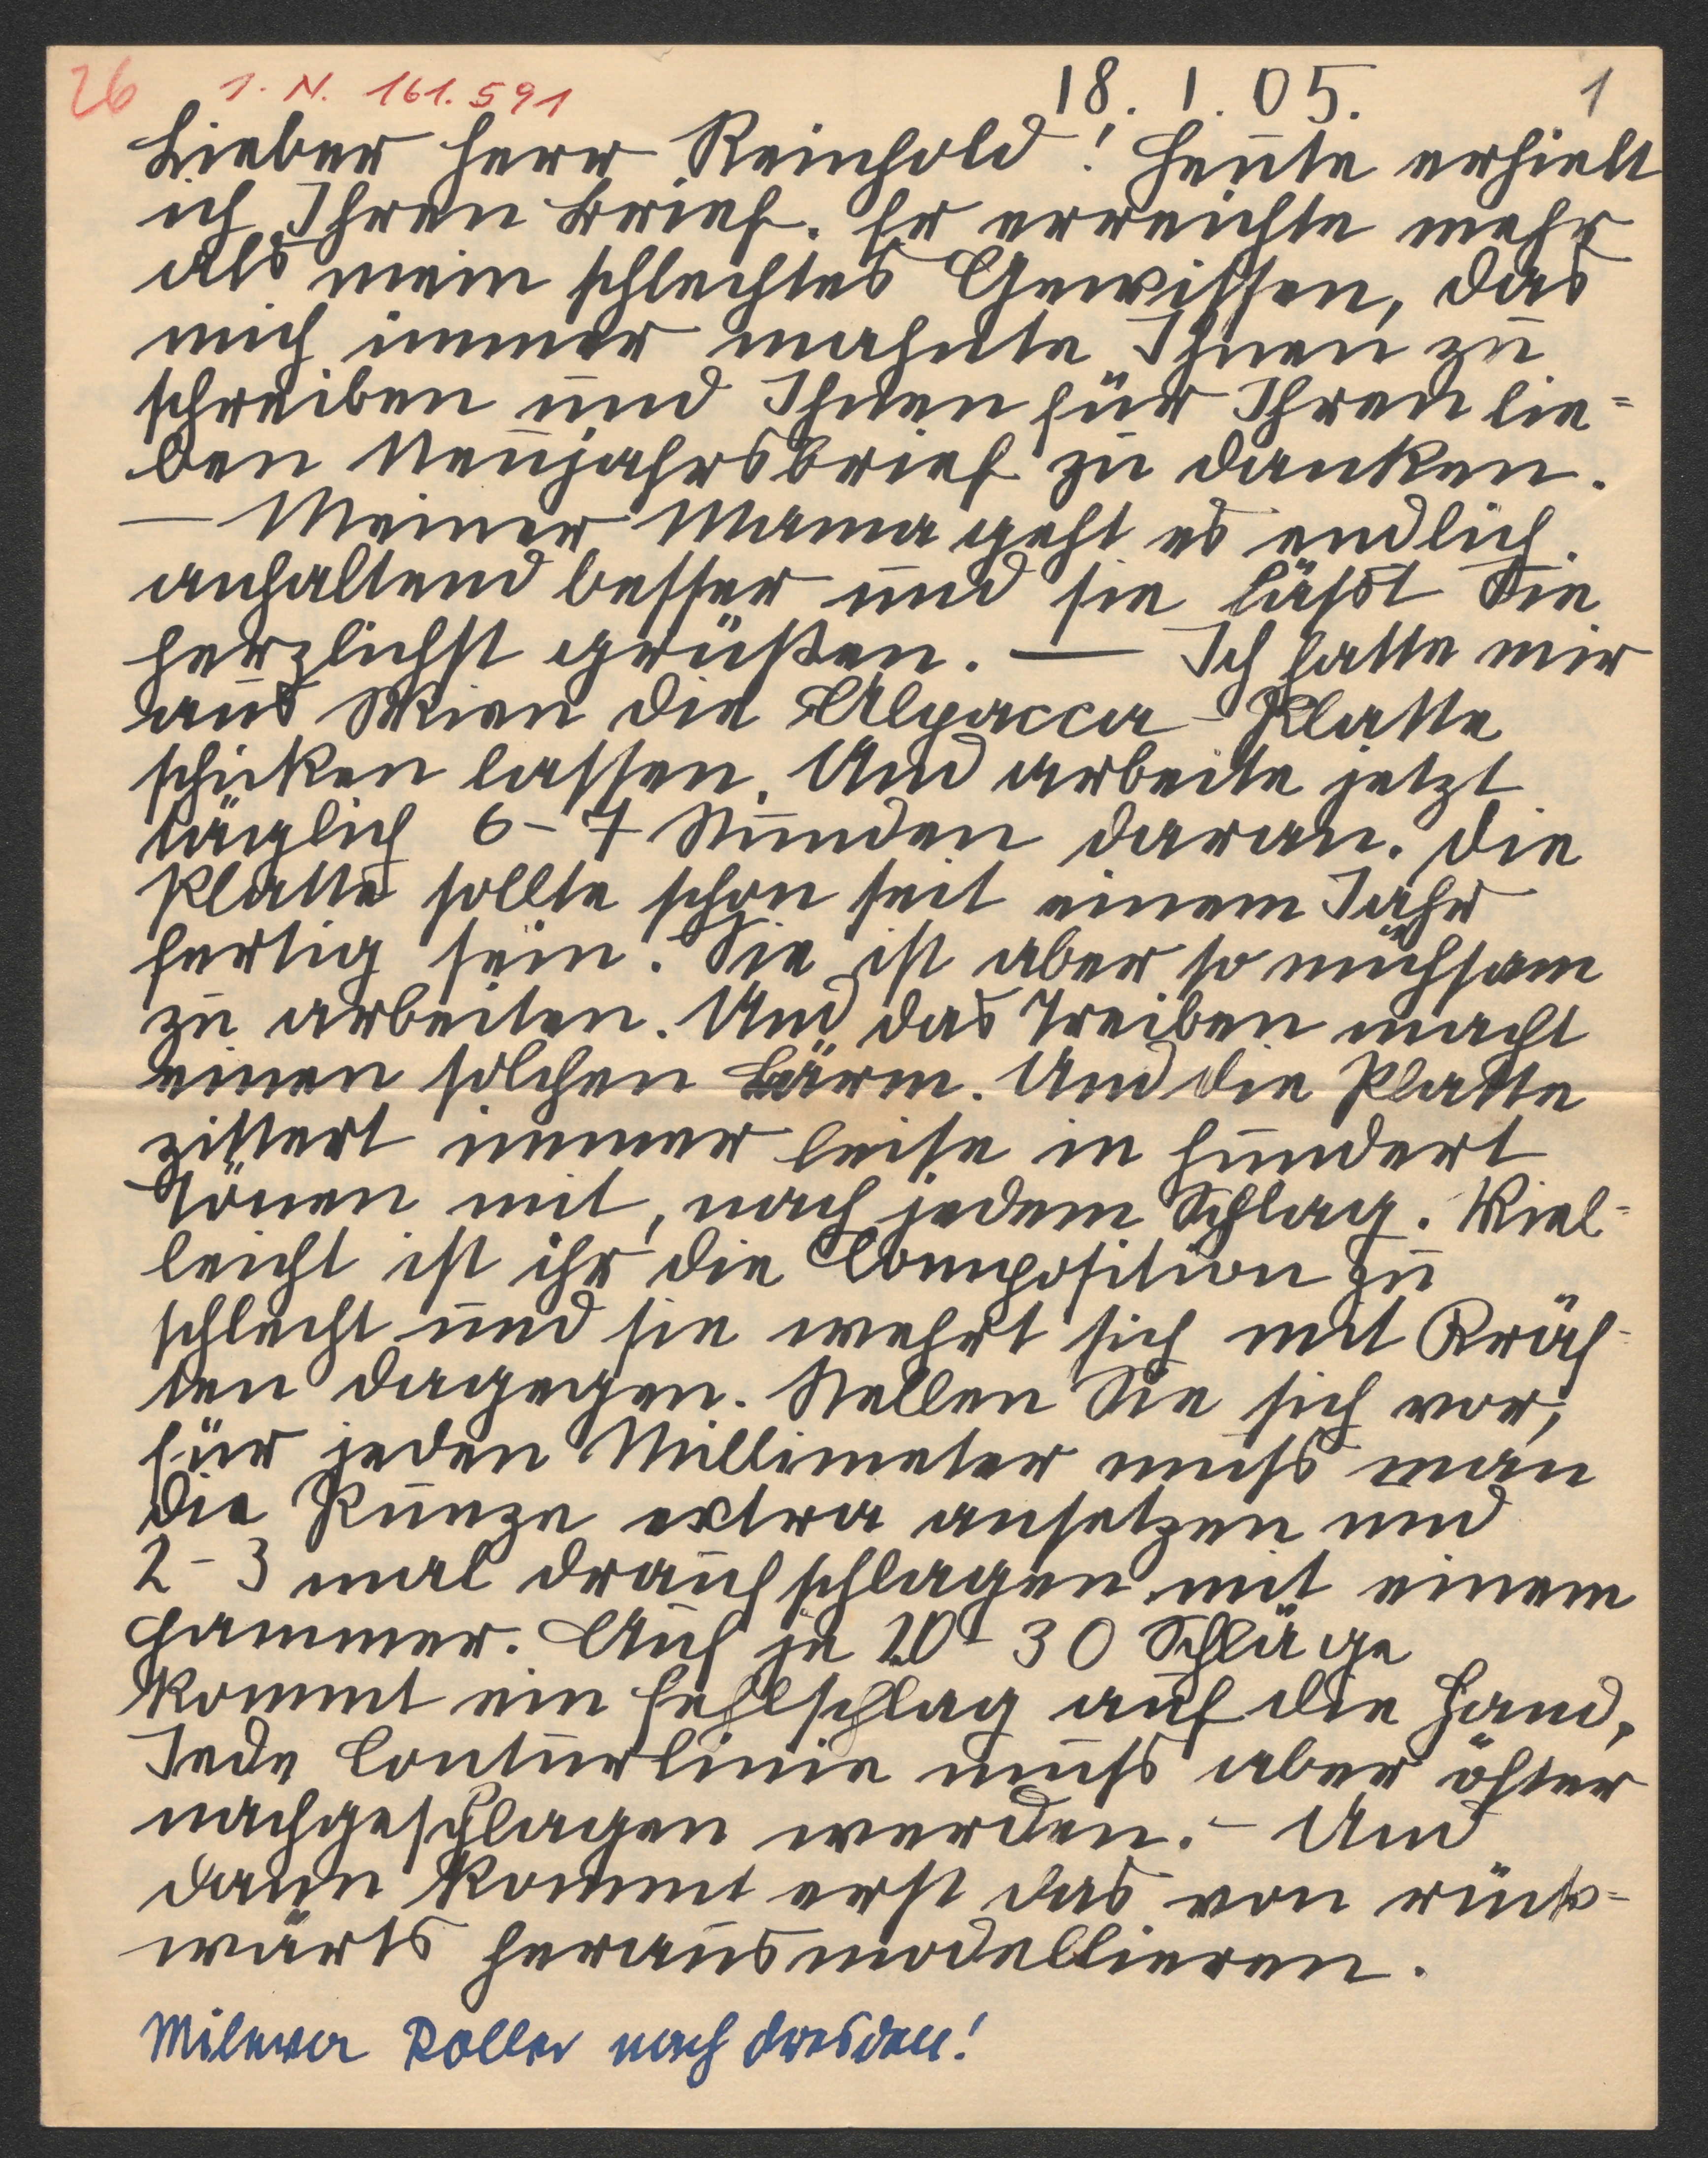 26 I. N. 161.591 18. 1. 05. 1
Lieber Herr Reinhold! Heute erhielt
ich Ihren Brief. Er erreichte mehr
als mein schlechtes Gewissen, das
mich immer mahnte Ihnen zu
schreiben und Ihnen für Ihren lie=
ben Neujahrsbrief zu danken.
— Meiner Mama geht es endlich
anhaltend besser und sie läßt Sie
herzlichst grüßen. — Ich hatte mir
aus Wien die Alpacca-Platte
schicken lassen. Und arbeite jetzt
täglich 6-7 Stunden daran. Die
Platte sollte schon seit einem Jahr
fertig sein. Sie ist aber so mühsam
zu arbeiten. Und das Treiben macht
einen solchen Lärm. Und die Platte
zittert immer leise in hundert
Tönen mit, nach jedem Schlag. Viel=
leicht ist ihr die Composition zu
schlecht und sie wehrt sich mit Kräf-
ten dagegen. Stellen Sie sich vor,
für jeden Millimeter muß man
die Punze extra ansetzen und
2-3 mal drauf schlagen mit einem
Hammer. Auf je 20-30 Schläge
kommt ein Fehlschlag auf die Hand.
Jede Conturlinie muß aber öfter
nachgeschlagen werden. — Und
dann kommt erst das von rück=
wärts herausmodellieren.
Mileva Roller nach Dresden!